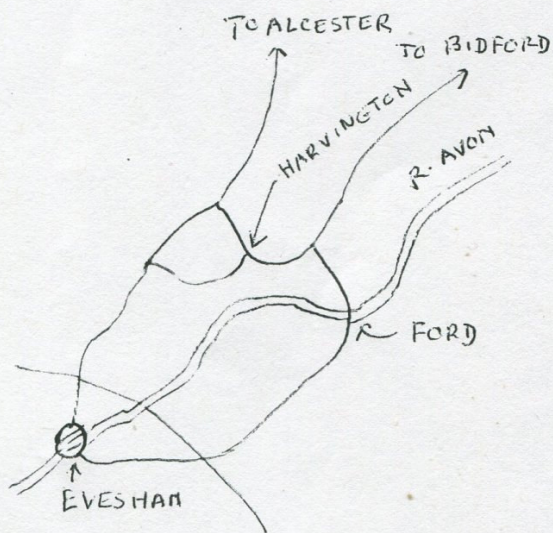 TO ALCESTER
TO BIDFORD
HARVINGTON
R. AVON
FORD
EVESHAM